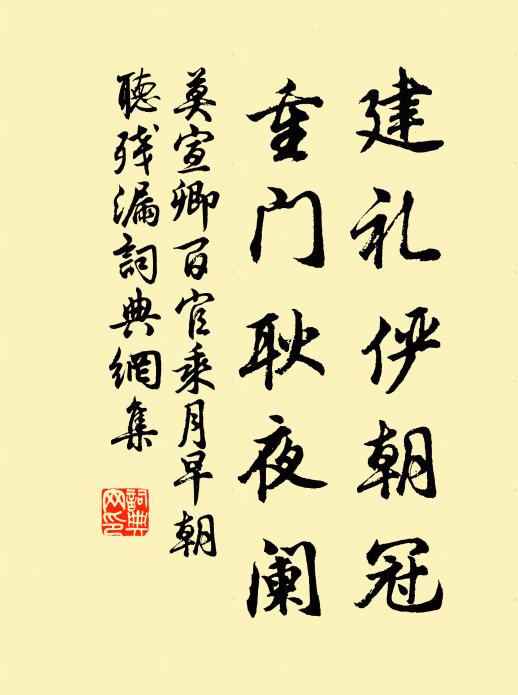 建礼俨朝冠
重门耿夜阑
莫宣卿百官乘月早朝
聽残漏詞典網集
詞典
网印